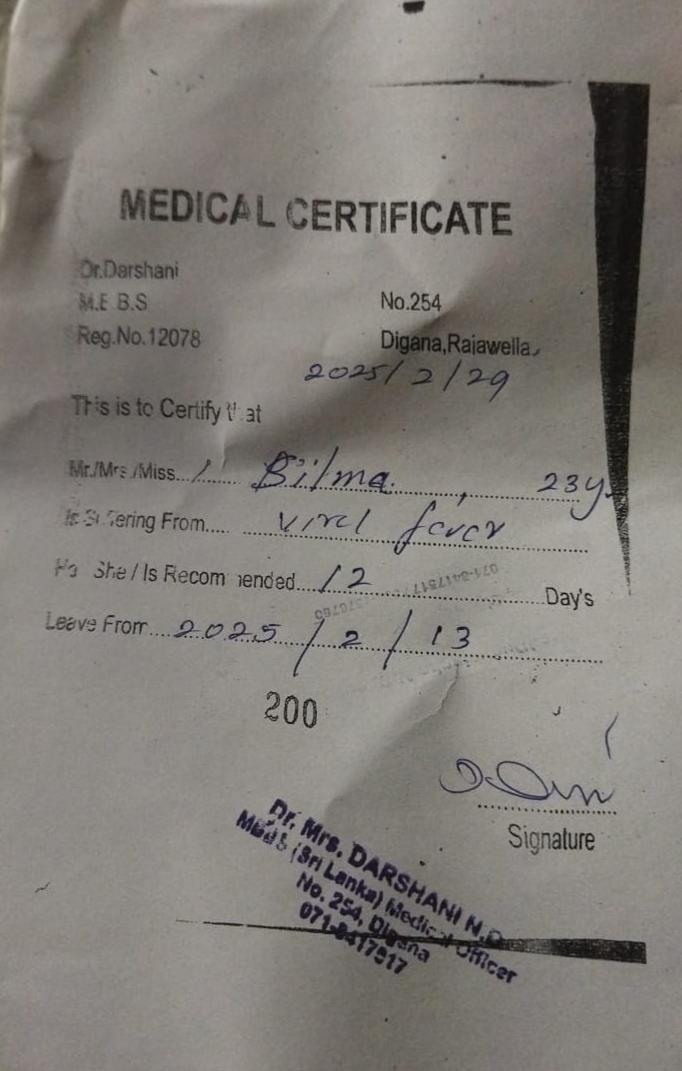 MEDICAL CERTIFICATE
Dr.Darshani
M.E B.S No.254
Reg.No.12078 Digana,Rajawella,
2025/2/29
This is to Certify that
Mr./Mrs./Miss. Bilma, 23y.
Is Suffering From viral fever
She / Is Recommended 12 Day's
Leave From 2025/2/13
200
Signature
Dr. Mrs. DARSHANI N.D
MBBS (Sri Lanka) Medical Officer
No. 254, Digana
071-8417517